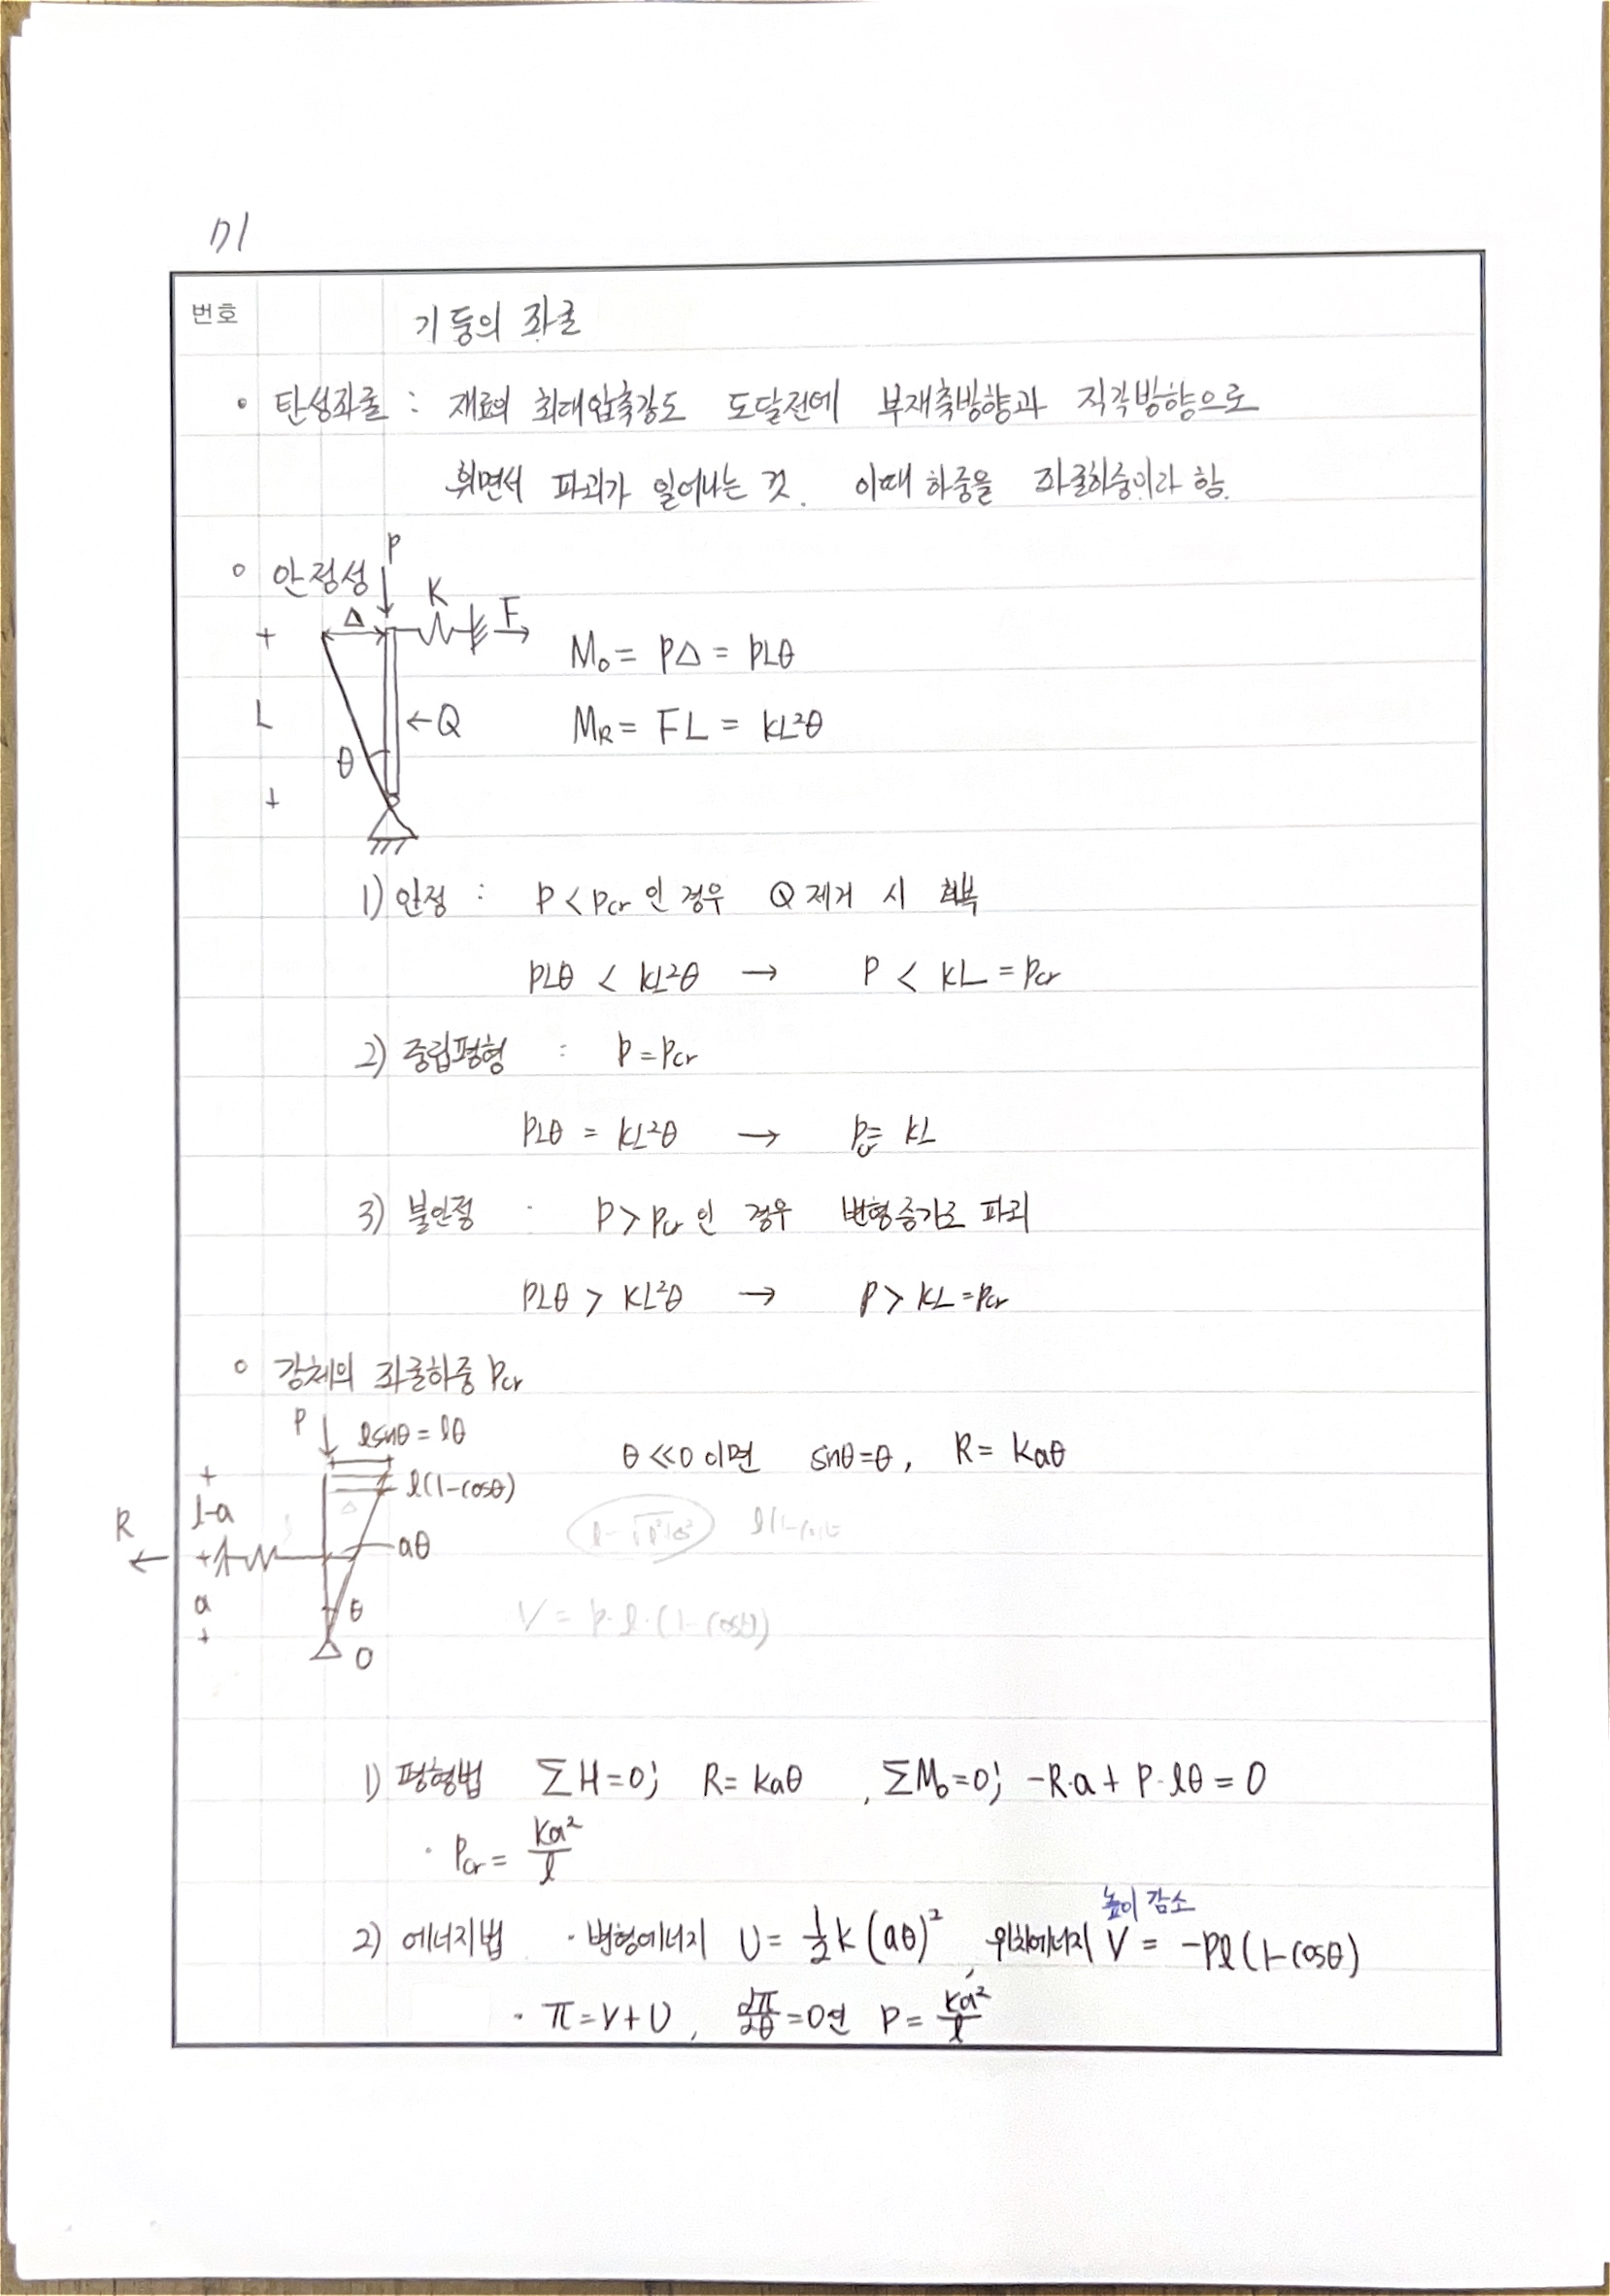 171
번호
기둥의 좌굴
• 탄성좌굴 : 재료의 최대압축강도 도달전에 부재축방향과 직각방향으로
휘면서 파괴가 일어나는 것. 이때 하중을 좌굴하중이라 함.
○ 안정성
P
K
Δ
F
L
←Q
θ
M₀ = PΔ = PLθ
M_R = FL = KL²θ
1) 안정 : P < Pcr 인 경우 Q 제거 시 회복
PLθ < KL²θ → P < KL = Pcr
2) 중립평형 : P = Pcr
PLθ = KL²θ → Pcr = KL
3) 불안정 : P > Pcr 인 경우 변형증가로 파괴
PLθ > KL²θ → P > KL = Pcr
○ 강체의 좌굴하중 Pcr
P
lsinθ = lθ
θ ≪ 0 이면 sinθ = θ, R = Kaθ
l(1-cosθ)
l-a
R
aθ
a
θ
V = P·l·(1-cosθ)
O
1) 평형법 ΣH=0; R = Kaθ , ΣM₀=0; -R·a + P·lθ = 0
· Pcr = Ka²/l
높이 감소
2) 에너지법 · 변형에너지 U = ½K(aθ)², 위치에너지 V = -Pl(1-cosθ)
· π = V + U , dπ/dθ = 0 면 P = Ka²/l